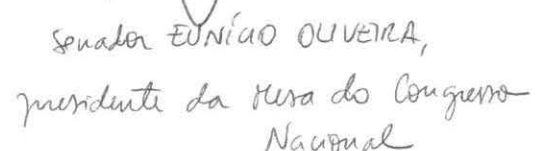 Senador EUNÍCIO OLIVEIRA,
presidente da Mesa do Congresso
Nacional